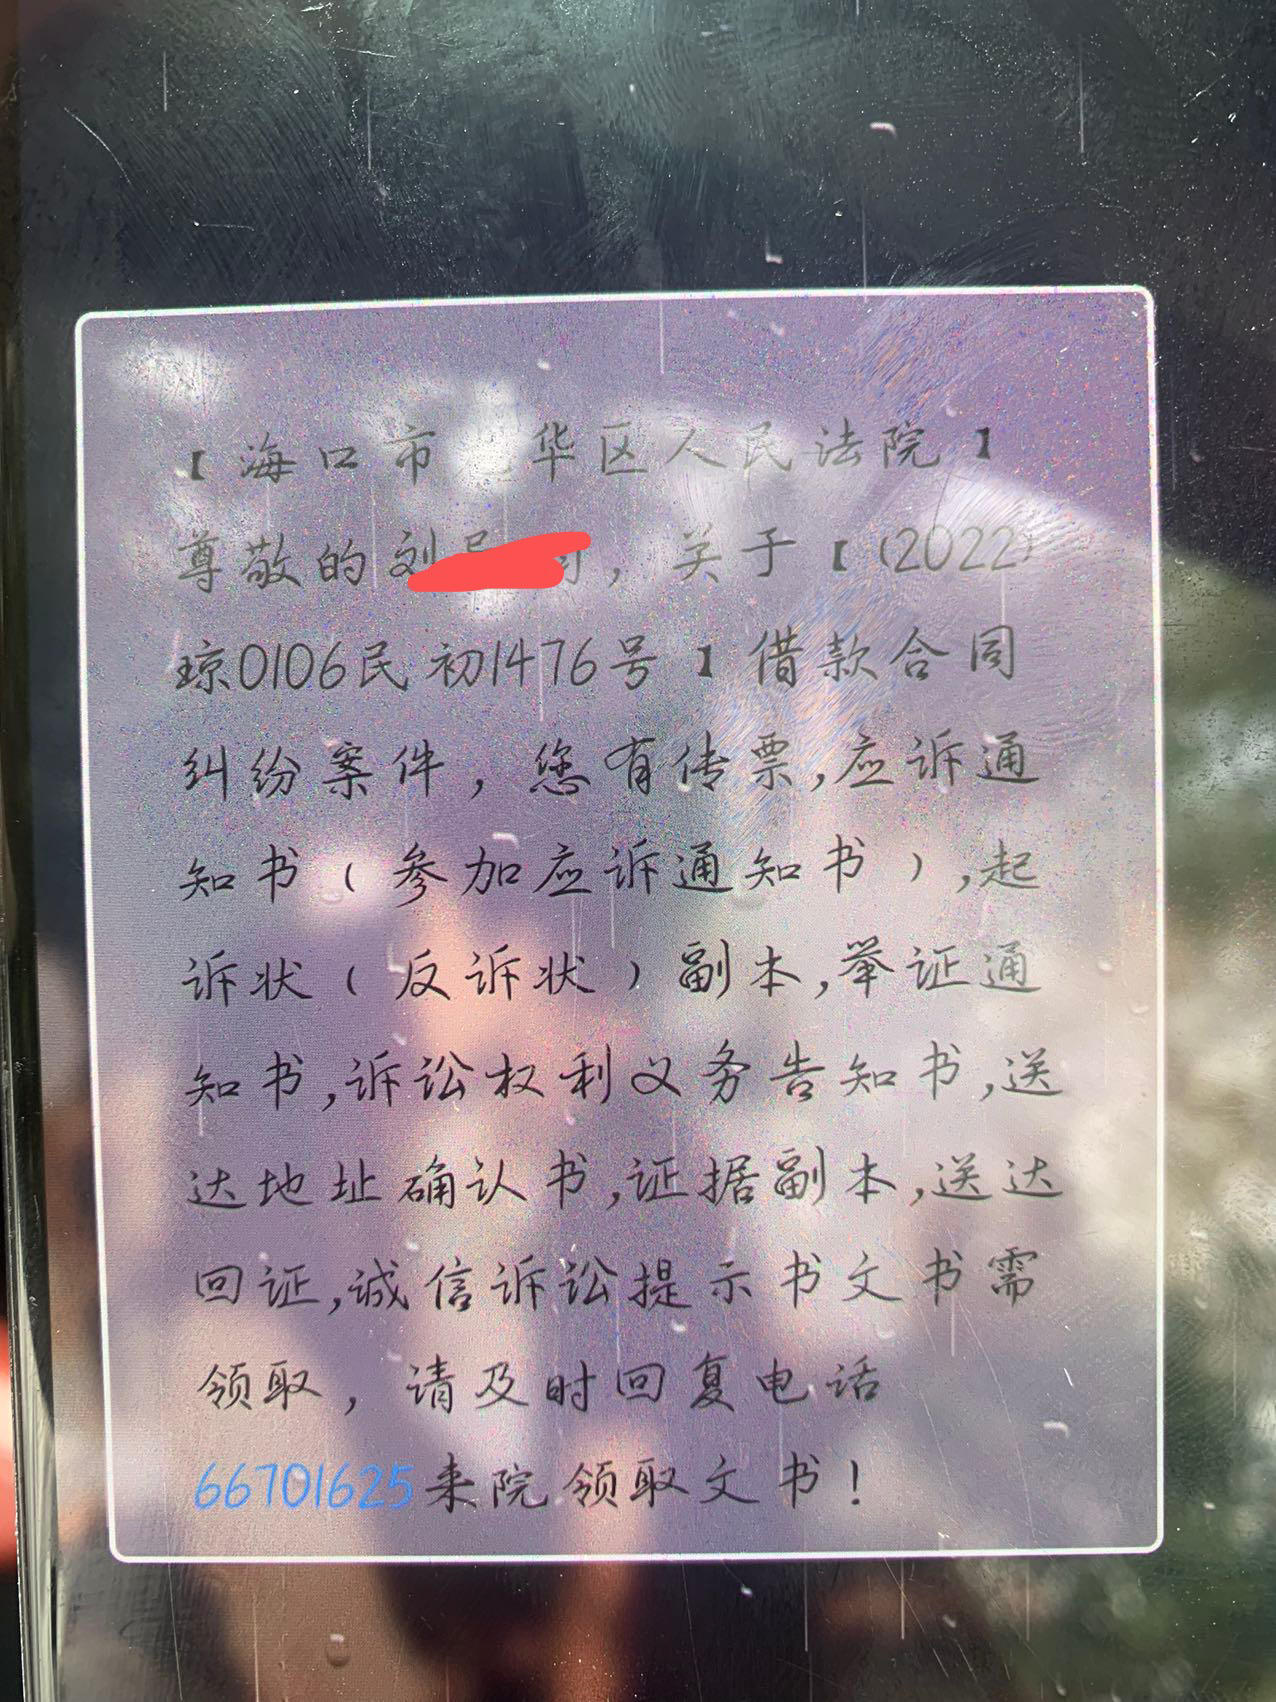 【海口市龙华区人民法院】
尊敬的刘，关于【(2022)
琼0106民初1476号】借款合同
纠纷案件，您有传票,应诉通
知书（参加应诉通知书）,起
诉状（反诉状）副本,举证通
知书,诉讼权利义务告知书,送
达地址确认书,证据副本,送达
回证,诚信诉讼提示书文书需
领取，请及时回复电话
66701625来院领取文书！